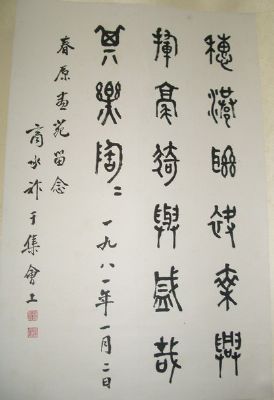 穗港聯袂乘興
揮毫猗與盛哉
其樂陶〻一九八一年一月二日
春原畫苑留念
商承祚于集會上